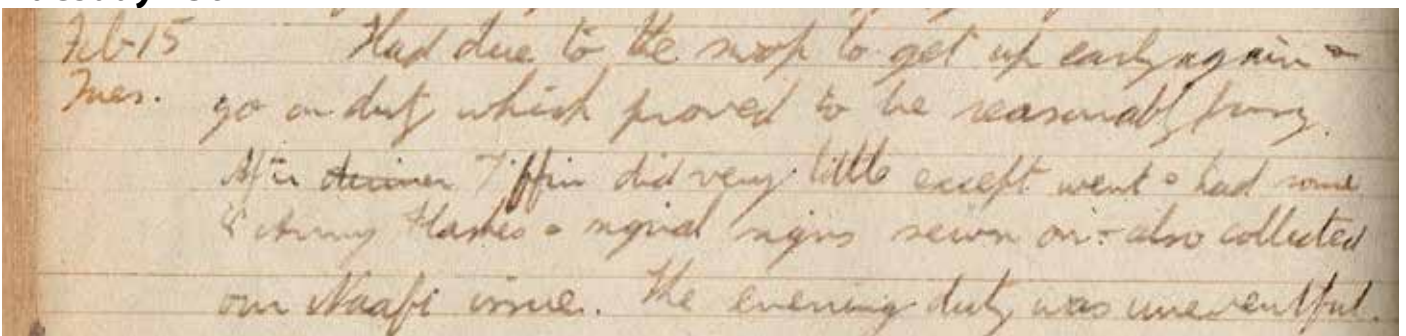 Feb 15 Had due to the swop to get up early again &
Tues. go on duty which proved to be reasonably busy.
After dinner Tiffin did very little except went & had some
Army Flashes & signal signs sewn on - also collected
our Naafi issue. The evening duty was uneventful.